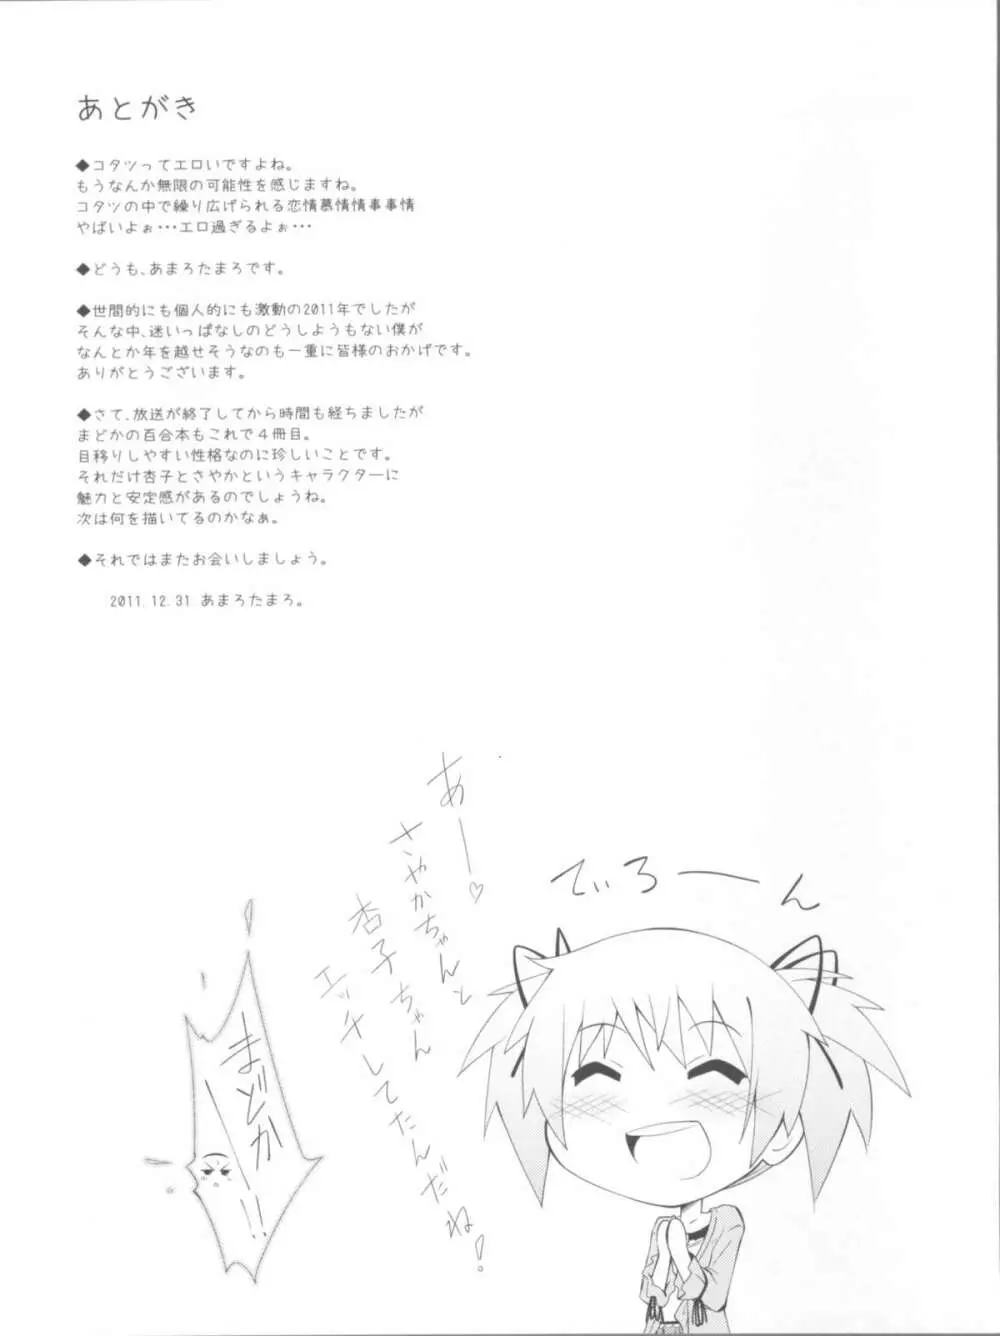 あとがき
◆コタツってエロいですよね。
もうなんか無限の可能性を感じますね。
コタツの中で繰り広げられる恋情慕情情事事情
やばいよぉ･･･エロ過ぎるよぉ･･･
◆どうも、あまろたまろです。
◆世間的にも個人的にも激動の2011年でしたが
そんな中、迷いっぱなしのどうしようもない僕が
なんとか年を越せそうなのも一重に皆様のおかげです。
ありがとうございます。
◆さて、放送が終了してから時間も経ちましたが
まどかの百合本もこれで４冊目。
目移りしやすい性格なのに珍しいことです。
それだけ杏子とさやかというキャラクターに
魅力と安定感があるのでしょうね。
次は何を描いてるのかなぁ。
◆それではまたお会いしましょう。
2011.12.31 あまろたまろ。
あー♡
さやかちゃんと
杏子ちゃん
エッチしてたんだね！
てぃろーん
まどかーー!!